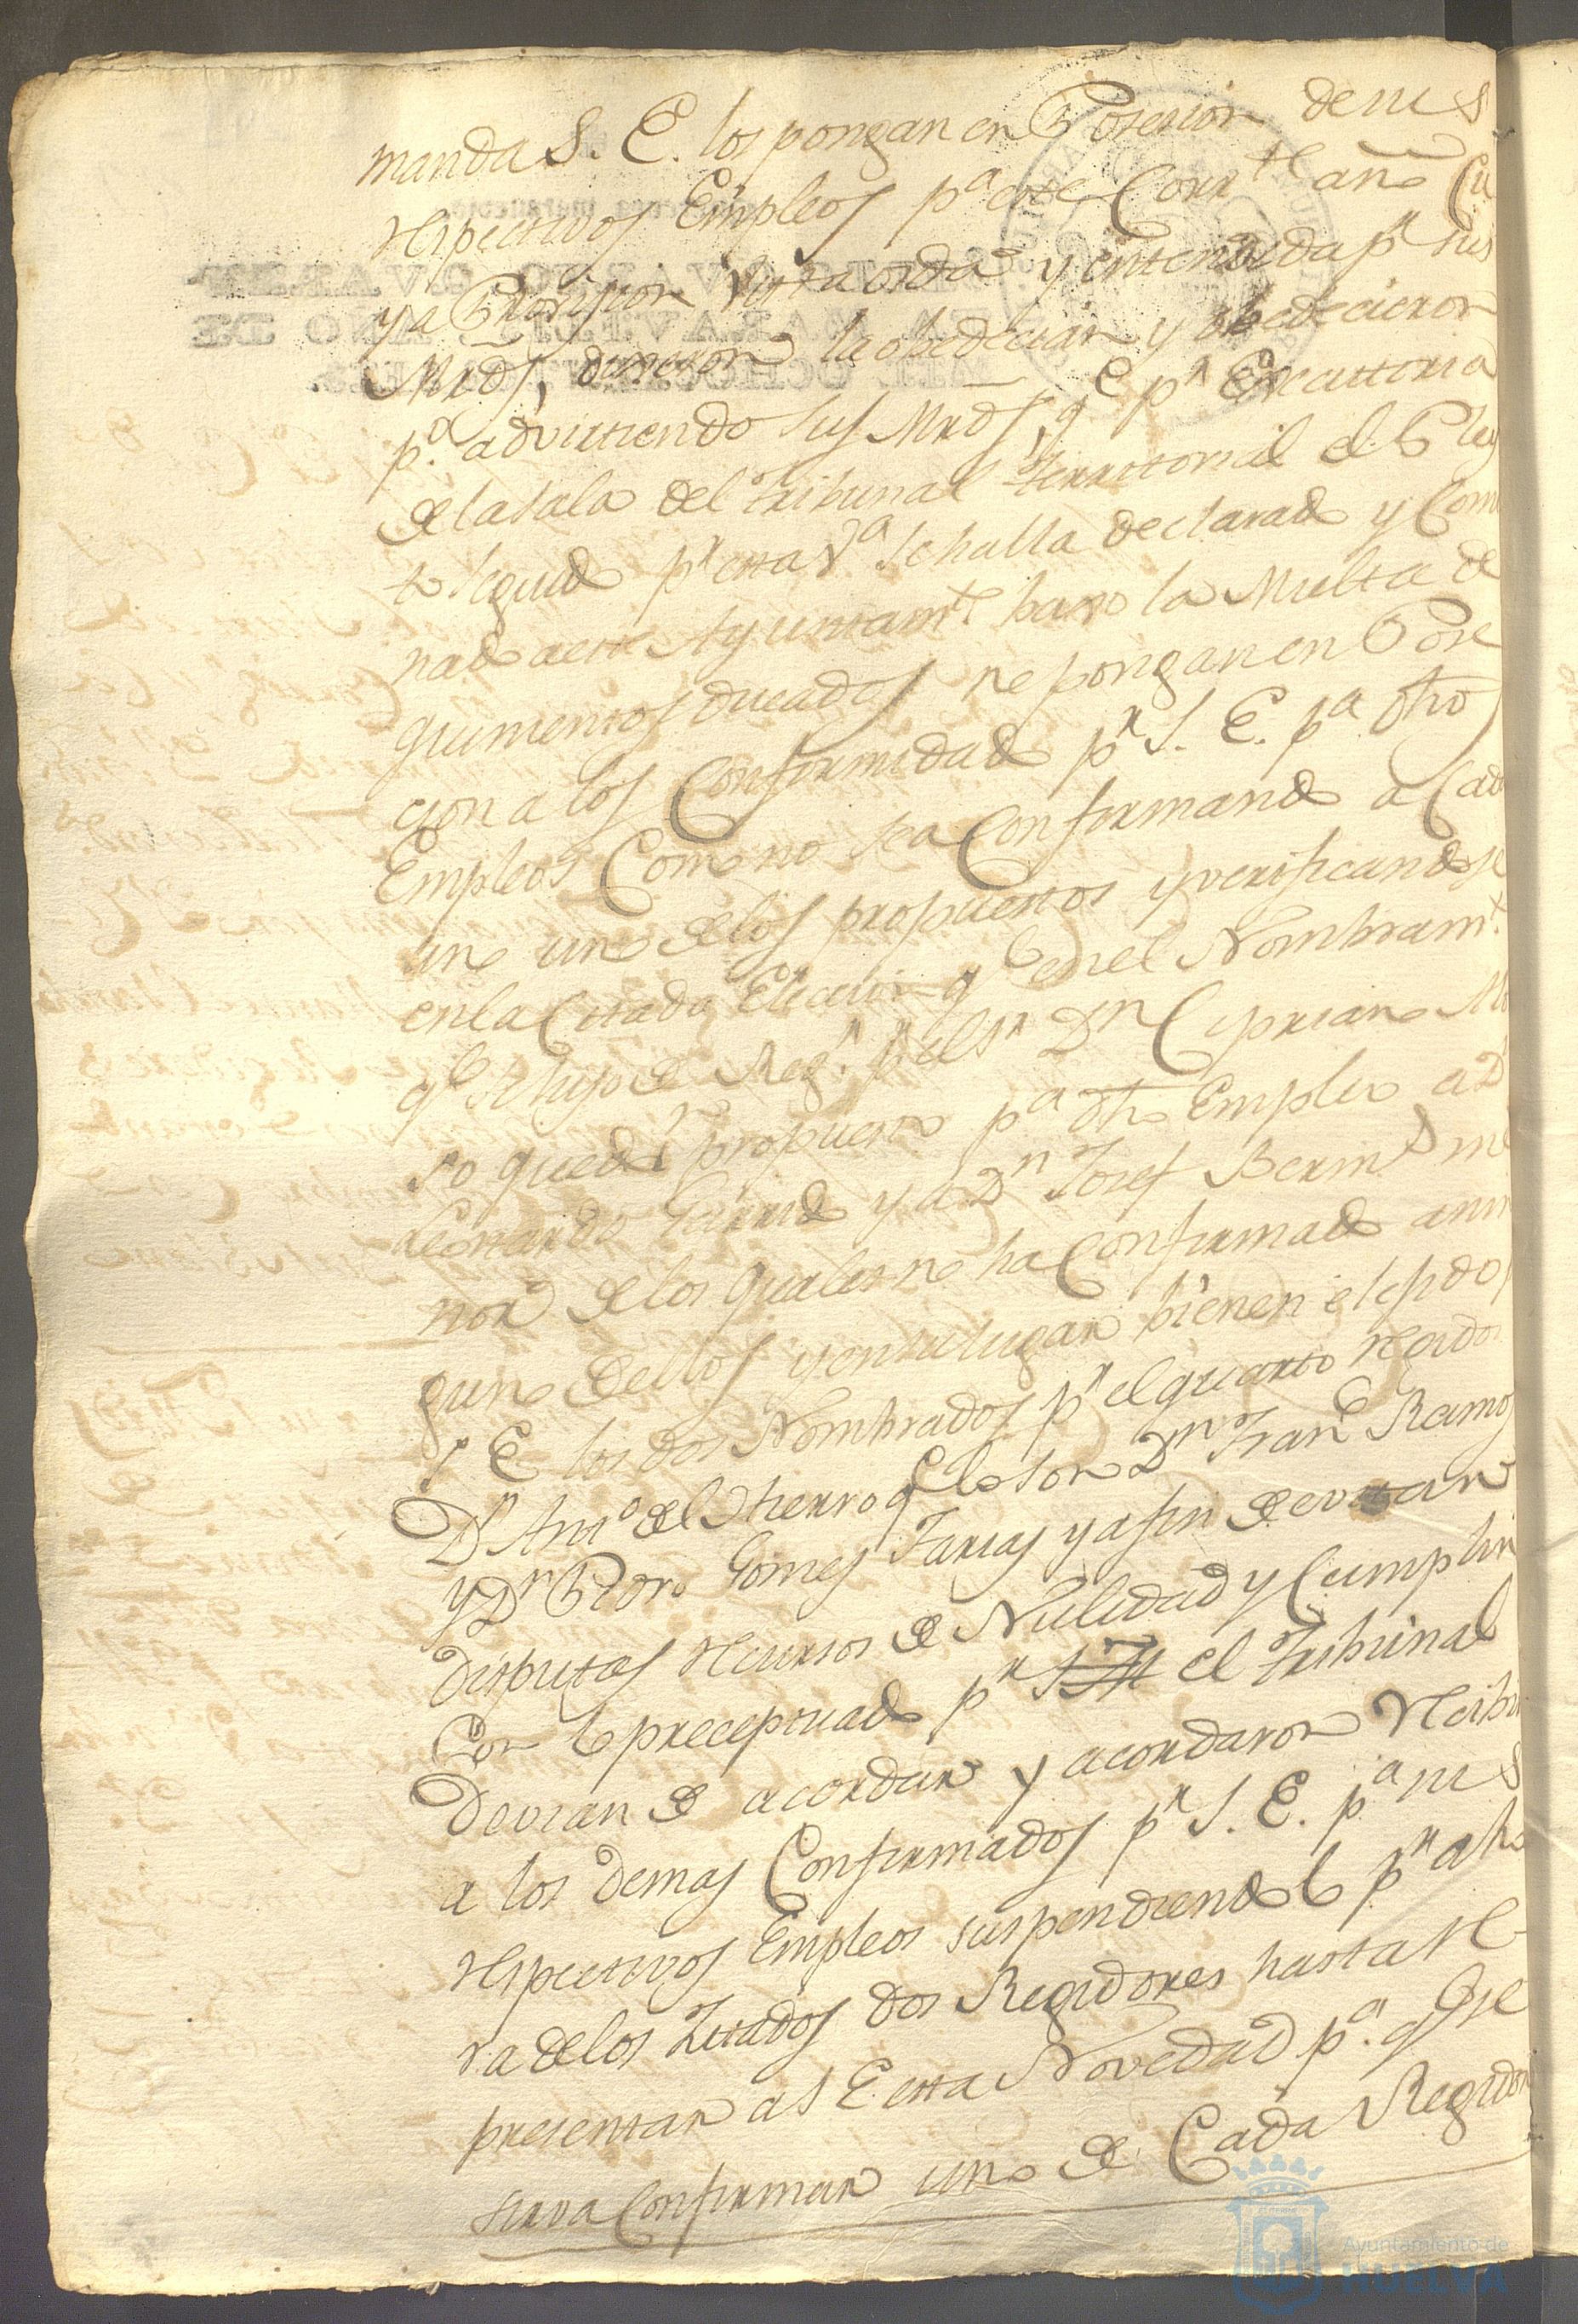 manda S. E. los pongan en Posesion de sus
respectivos Empleos pa este Corrte año Cu
ya Provision vista oida y entendida pr sus
Mrds, dixeron la obedecian y obedecieron
pa. advirtiendo sus Mrds, qe pr Executoria
de la sala del tribunal territorial el Pley
to seguido pr esta Va. se halla declarado y Com
nado a este Ayuntamte baxo la Multa de
quinientos ducados no pongan en Pose
cion a los Confirmidad pr S. E. pa otros
Empleos Como no sea Confirmando a Cada
uno uno de los propuestos y verificandose
en la Citada Eleccion qe en el Nombramt.
qe se hizo de Regr. pr el Sr Dn Cipriano M
so quedó propuesto pa otro Empleo a D
Leonardo Garrido y a Dn Josef Bermd me
nor de los quales no ha Confirmado anin
guno de ellos y en su lugar bienen elejidos
S E los dos Nombrados pr el quarto rexidor
Dn Anto del Hierro qe lo son Dn Frano Ramos
y Dn Pedro Gomes Farias y a fin de evitar
disputas recursos de Nulidad y Cumplir
Con lo preceptuado pr el tribunal
Devian de acordar y acordaron recibir
a los demas Confirmados pr S. E. pa sus
respectivos Empleos suspendiendolo pr aho
ra de los Zitados dos Regidores hasta re
presentar a S E esta Novedad pa. qe se
sirva Confirmar uno de Cada Regidor
Ayuntamiento de
HUELVA